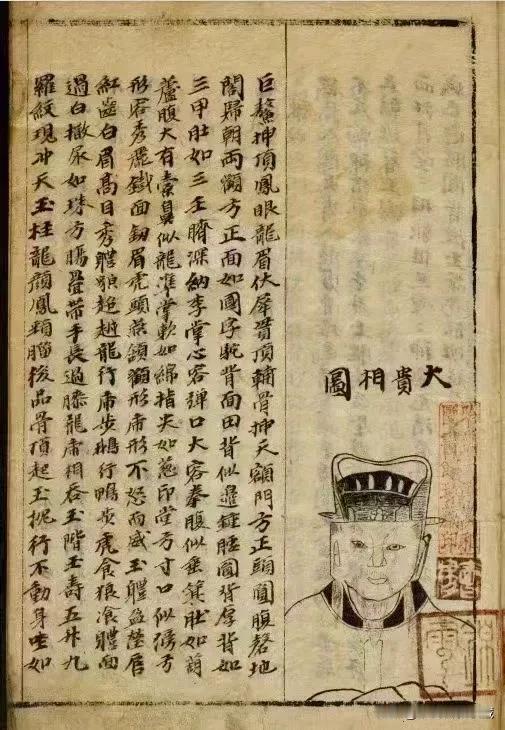 大貴相圖
巨鰲抻頂鳳眼龍眉伏犀貫頂輔骨抻天額門方正頭圓腹磬地
閣歸朝兩顴方正面如國字駝背面田背似鍾腰圓背厚背如
三甲肚如三壬臍深納李掌心容彈口大容拳腹似垂箕肚如葫
蘆腹大有囊鼻似龍准掌軟如綿指尖如葱印堂方寸口似方
形容秀麗鐵面劒眉虎頭燕頷獅形虎形不怒而威玉體瑩唇
紅齒白眉高目秀體貌超越龍行虎步鵝行鴨步虎食狼飡體面
過白撒尿如珠方腸疊帶手長過膝龍虎相吞玉階玉壽五九
羅紋現冲天玉柱龍顏鳳頸腦後品骨頂起玉枕行不動身坐如